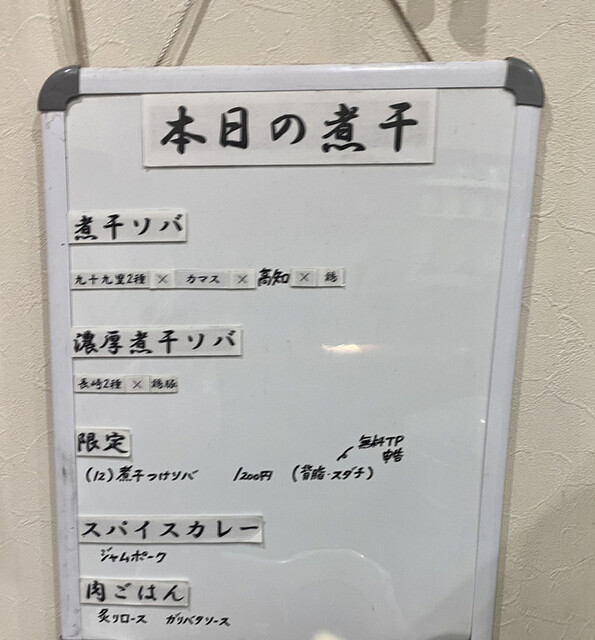 本日の煮干
煮干ソバ
九十九里2種 × カマス × 高知 × 鶏
濃厚煮干ソバ
長崎2種 × 鶏豚
限定
無料TP
申告
(12) 煮干つけソバ 1200円 (背脂・スダチ)
スパイスカレー
ジャムポーク
肉ごはん
炙りロース ガリバタソース